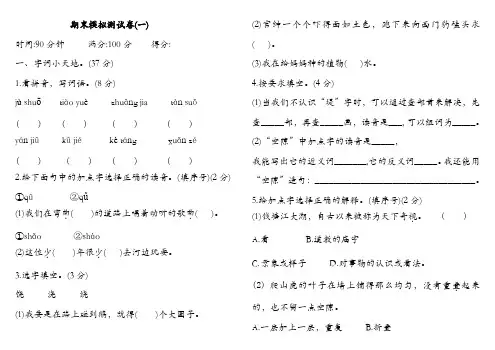 期末模拟测试卷(一)
时间:90分钟 满分:100分 得分:
一、字词小天地。(37分)
1.看拼音，写词语。(8分)
jù shuō xiāo yuè zhuānɡ jia
( ) ( ) ( ) ( )
yán jiū kū jié
( ) ( ) ( ) ( )
2.给下面句中的加点字选择正确的读音。(填序号)(2分)
①qū ②qǔ
(1)我们在弯曲( )的道路上唱着动听的歌曲( )。
①shǎo ②shào
(2)这位少( )年很少( )去河边玩耍。
3.选字填空。(3分)
饶 浇 绕
(1)我要是在路上碰到蹄，就得( )个大圈子。
(2)官绅一个个吓得面如土色，跪下来向西门豹磕头求
( )。
(3)我在给妈妈种的植物( )水。
4.按要求填空。(4分)
(1)当我们不认识“堤”字时，可以通过查部首来解决，先
查_____部，再查_____画，读音是___，可以组词为_____。
(2)“空隙”中加点字的读音是_____，
我能写出它的近义词_______,它的反义词_____。我还能用
“空隙”造句：___________________________________。
5.给加点字选择正确的解释。(填序号)(2分)
(1)钱塘江大潮，自古以来被称为天下奇观。 ( )
A.看 B.道教的庙宇
C.景象或样子 D.对事物的认识或看法。
(2) 爬山虎的叶子在墙上铺得那么均匀，没有重叠起来
的，也不留一点空隙。
A.一层加上一层，重复 B.折叠